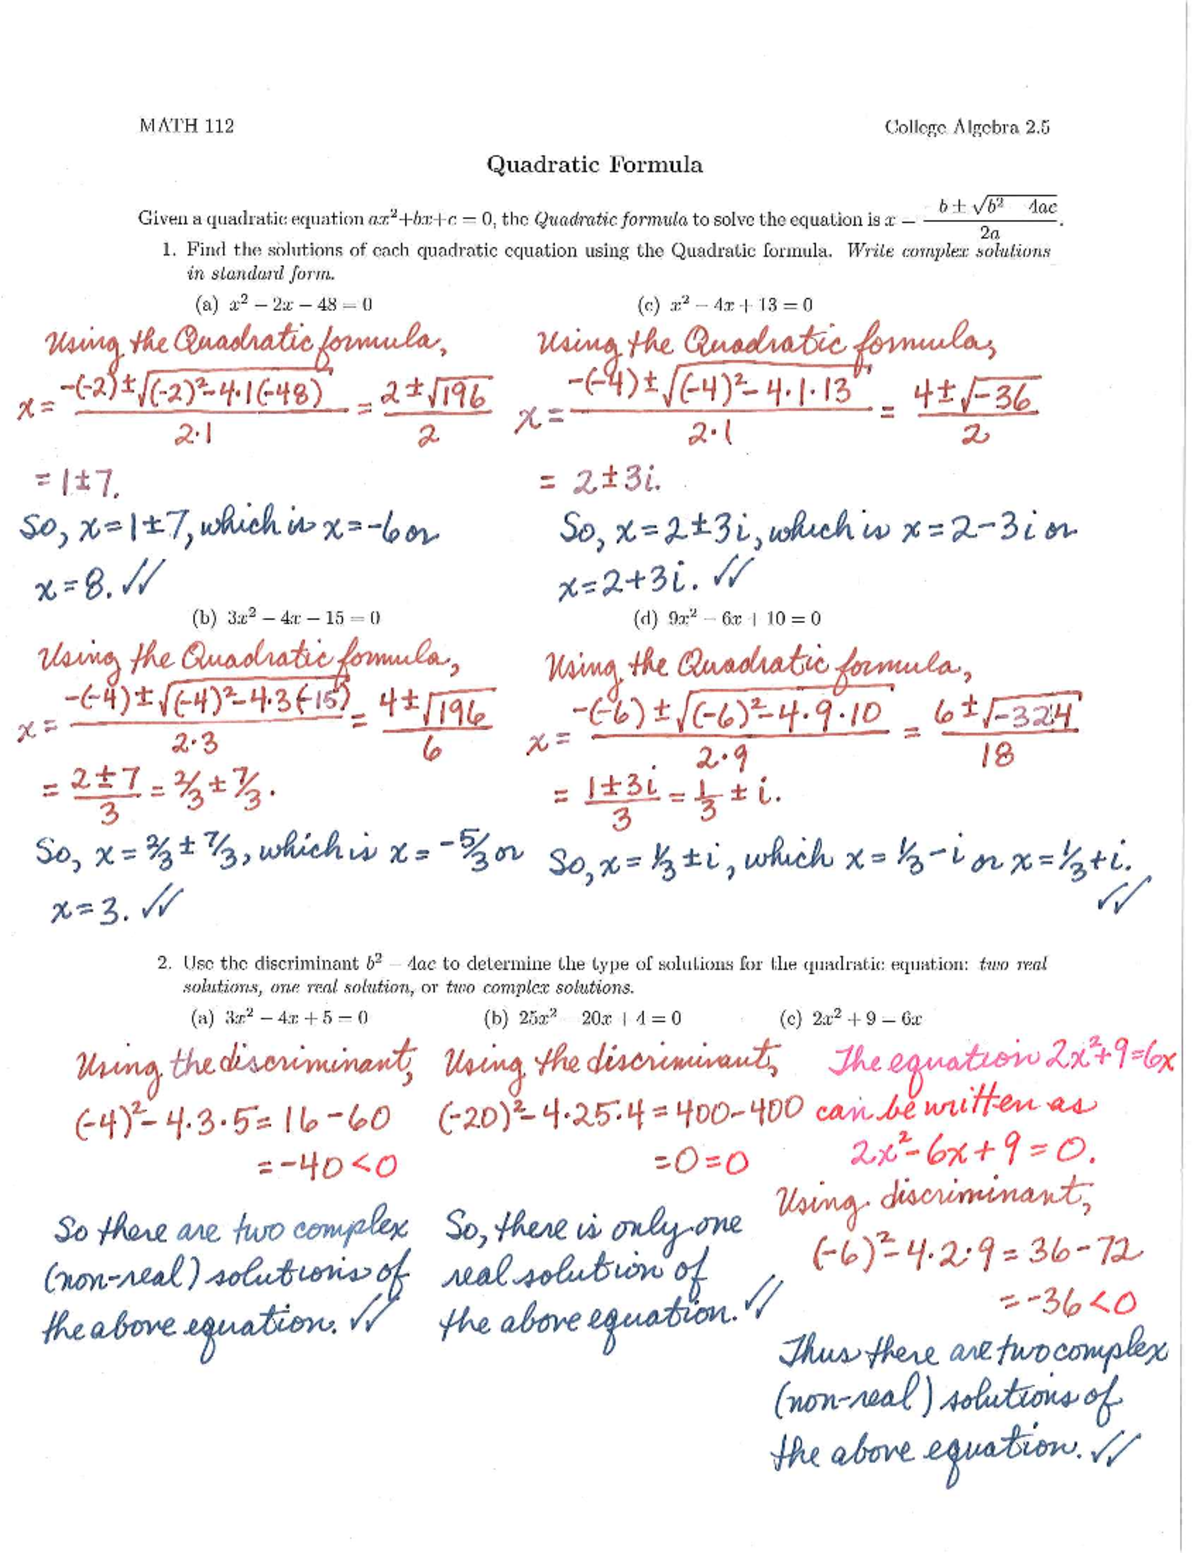 MATH 112 College Algebra 2.5
Quadratic Formula
Given a quadratic equation ax²+bx+c = 0, the Quadratic formula to solve the equation is x = (−b ± √(b² − 4ac))/(2a).
1. Find the solutions of each quadratic equation using the Quadratic formula. Write complex solutions
in standard form.
(a) x² − 2x − 48 = 0
Using the Quadratic formula,
x = (-(-2) ± √((-2)² - 4·1(-48)))/(2·1) = (2 ± √196)/2
= 1 ± 7.
So, x = 1 ± 7, which is x = -6 or
x = 8. ✓✓
(c) x² − 4x + 13 = 0
Using the Quadratic formula,
x = (-(-4) ± √((-4)² - 4·1·13))/(2·1) = (4 ± √-36)/2
= 2 ± 3i.
So, x = 2 ± 3i, which is x = 2 - 3i or
x = 2 + 3i. ✓✓
(b) 3x² − 4x − 15 = 0
Using the Quadratic formula,
x = (-(-4) ± √((-4)² - 4·3(-15)))/(2·3) = (4 ± √196)/6
= (2 ± 7)/3 = 2/3 ± 7/3.
So, x = 2/3 ± 7/3, which is x = -5/3 or
x = 3. ✓✓
(d) 9x² − 6x + 10 = 0
Using the Quadratic formula,
x = (-(-6) ± √((-6)² - 4·9·10))/(2·9) = (6 ± √-324)/18
= (1 ± 3i)/3 = 1/3 ± i.
So, x = 1/3 ± i, which x = 1/3 - i or x = 1/3 + i.
✓✓
2. Use the discriminant b² − 4ac to determine the type of solutions for the quadratic equation: two real
solutions, one real solution, or two complex solutions.
(a) 3x² − 4x + 5 = 0
Using the discriminant,
(-4)² - 4·3·5 = 16 - 60
= -40 < 0
So there are two complex
(non-real) solutions of
the above equation. ✓✓
(b) 25x² − 20x + 4 = 0
Using the discriminant,
(-20)² - 4·25·4 = 400 - 400
= 0 = 0
So, there is only one
real solution of
the above equation. ✓✓
(c) 2x² + 9 = 6x
The equation 2x² + 9 = 6x
can be written as
2x² - 6x + 9 = 0.
Using discriminant,
(-6)² - 4·2·9 = 36 - 72
= -36 < 0
Thus there are two complex
(non-real) solutions of
the above equation. ✓✓